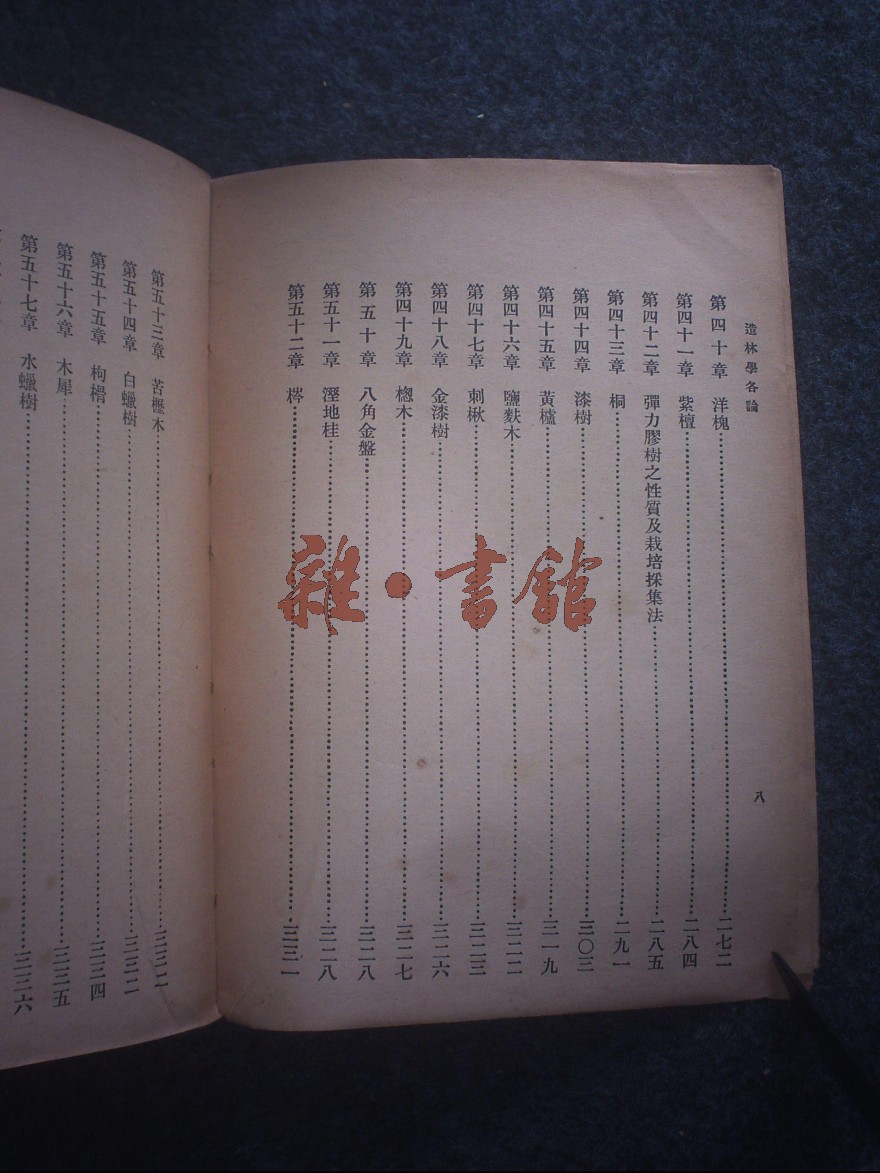 造林學各論
八
第四十章 洋槐 二七二
第四十一章 紫檀 二八四
第四十二章 彈力膠樹之性質及栽培採集法 二八五
第四十三章 桐 二九一
第四十四章 漆樹 三〇三
第四十五章 黃櫨 三一九
第四十六章 鹽麩木 三二二
第四十七章 刺楸 三二三
第四十八章 金漆樹 三二六
第四十九章 楤木 三二七
第五十章 八角金盤 三二八
第五十一章 溼地桂 三二八
第五十二章 梣 三三一
第五十三章 苦櫪木 三三二
第五十四章 白蠟樹 三三二
第五十五章 枸榾 三三四
第五十六章 木犀 三三五
第五十七章 水蠟樹 三三六
雜·書館